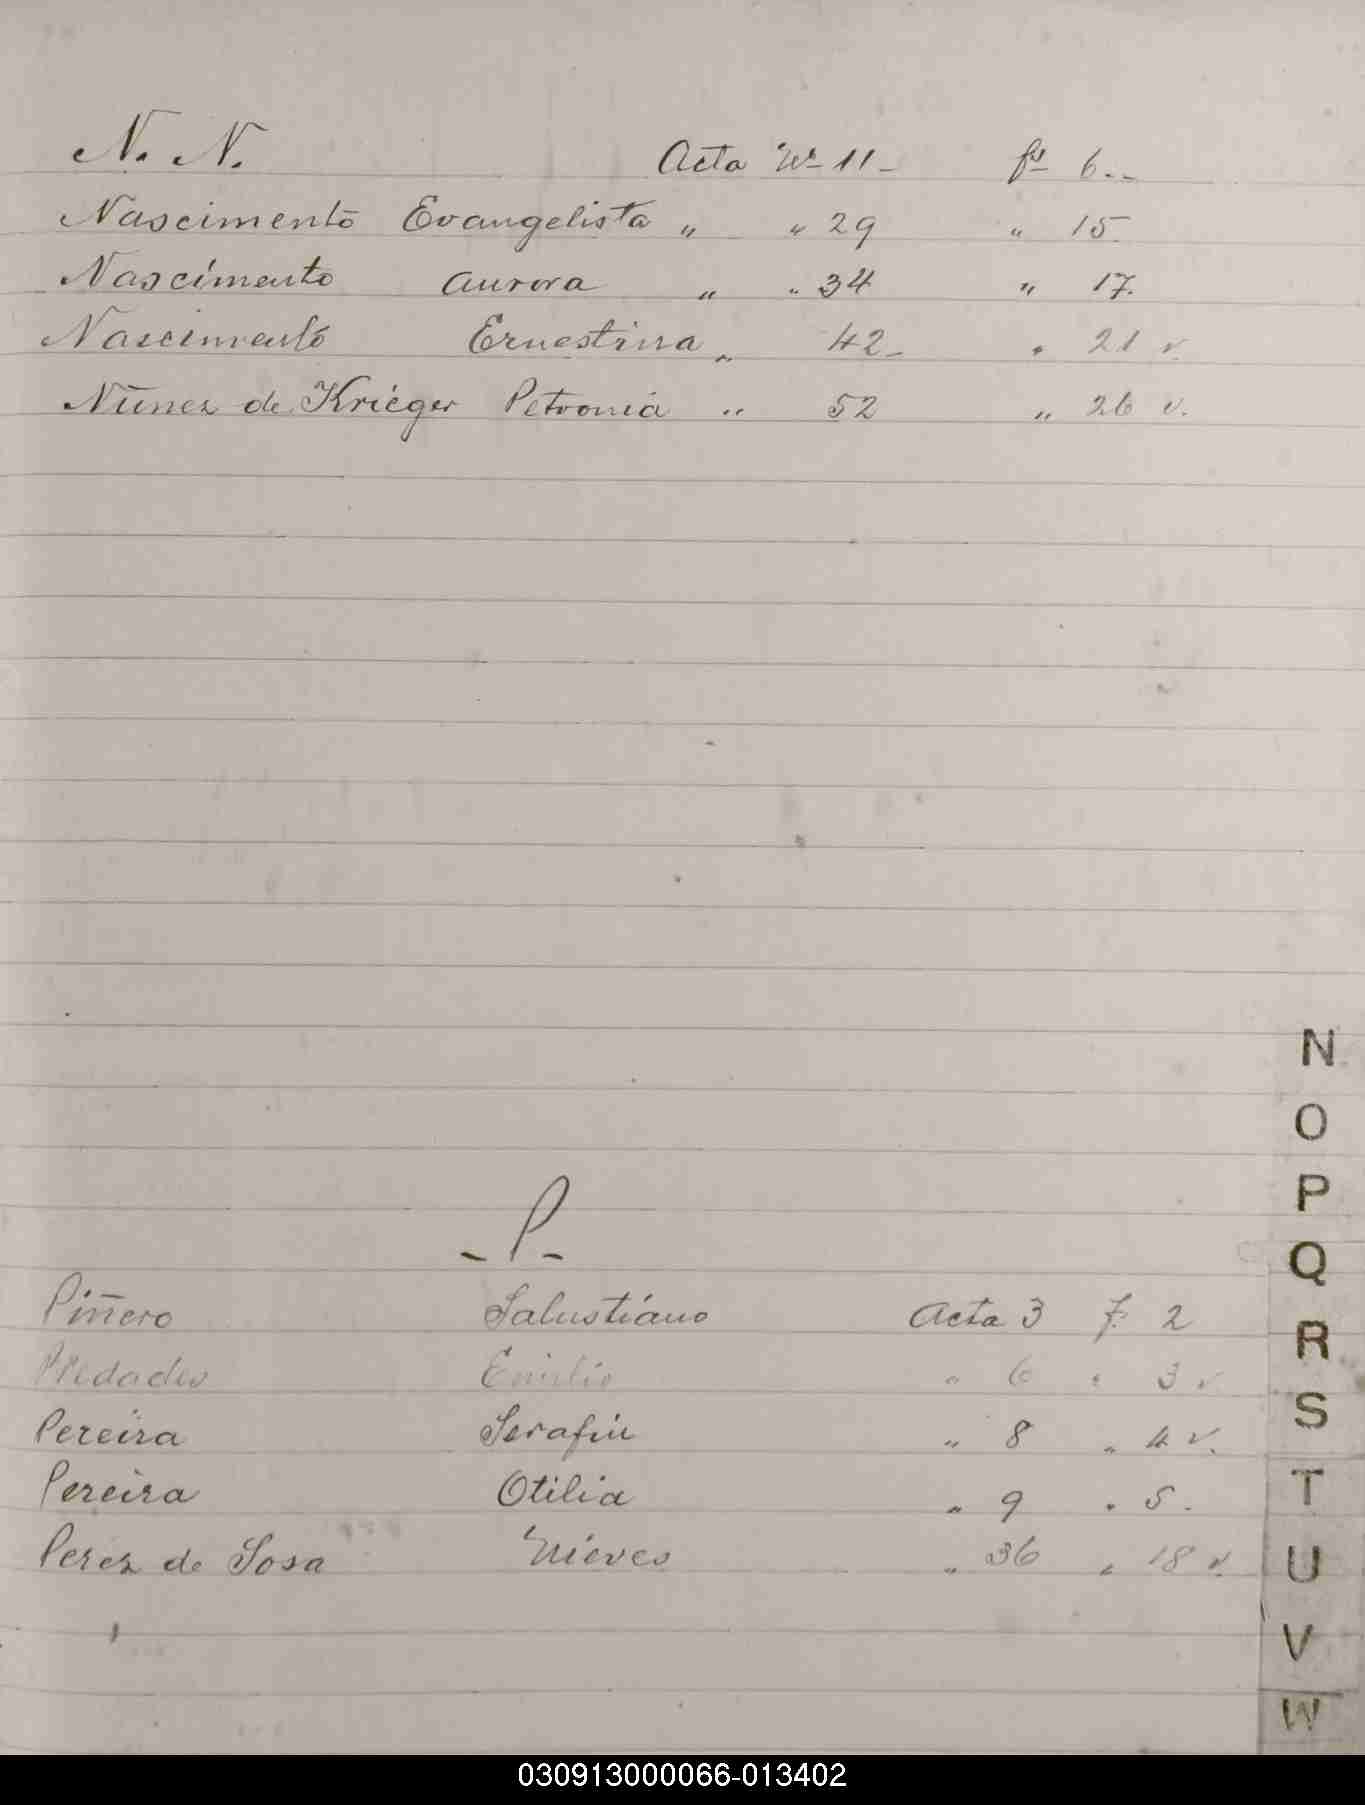 N. N. Acta Nº 11 - fº 6. -
Nascimento Evangelista " " 29 " 15.
Nascimento Aurora " " 34 " 17.
Nascimento Ernestina " 42 - " 21 v.
Núnez de Krieger Petronia " 52 " 26 v.
- P -
Piñero Salustiano Acta 3 f. 2
Emilio " 6 " 3 v.
Pereira Serafin " 8 " 4 v.
Pereira Otilia " 9 " 5.
Perez de Sosa Nieves " 36 " 18 v.
N
O
P
Q
R
S
T
U
V
W
030913000066-013402